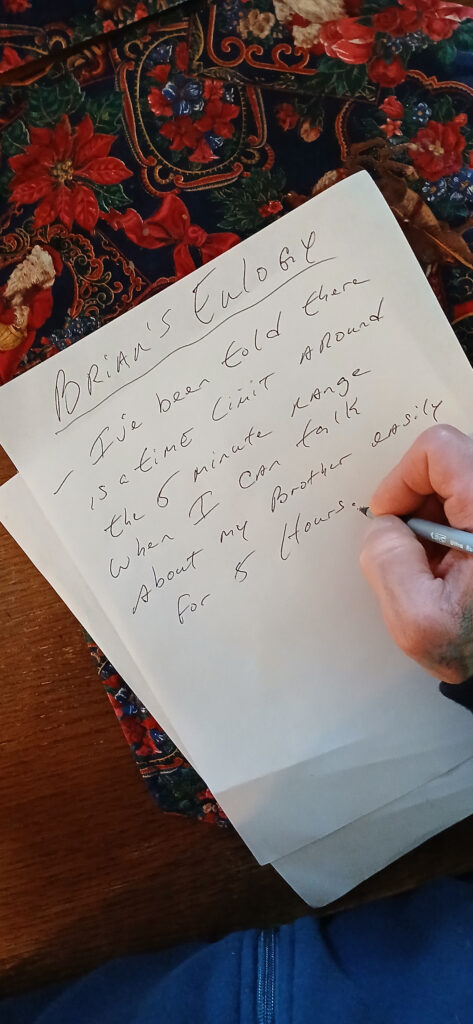 Brian's Eulogy
- I've been told there
is a time limit around
the 5 minute range
when I can talk
about my Brother easily
for 8 Hours.